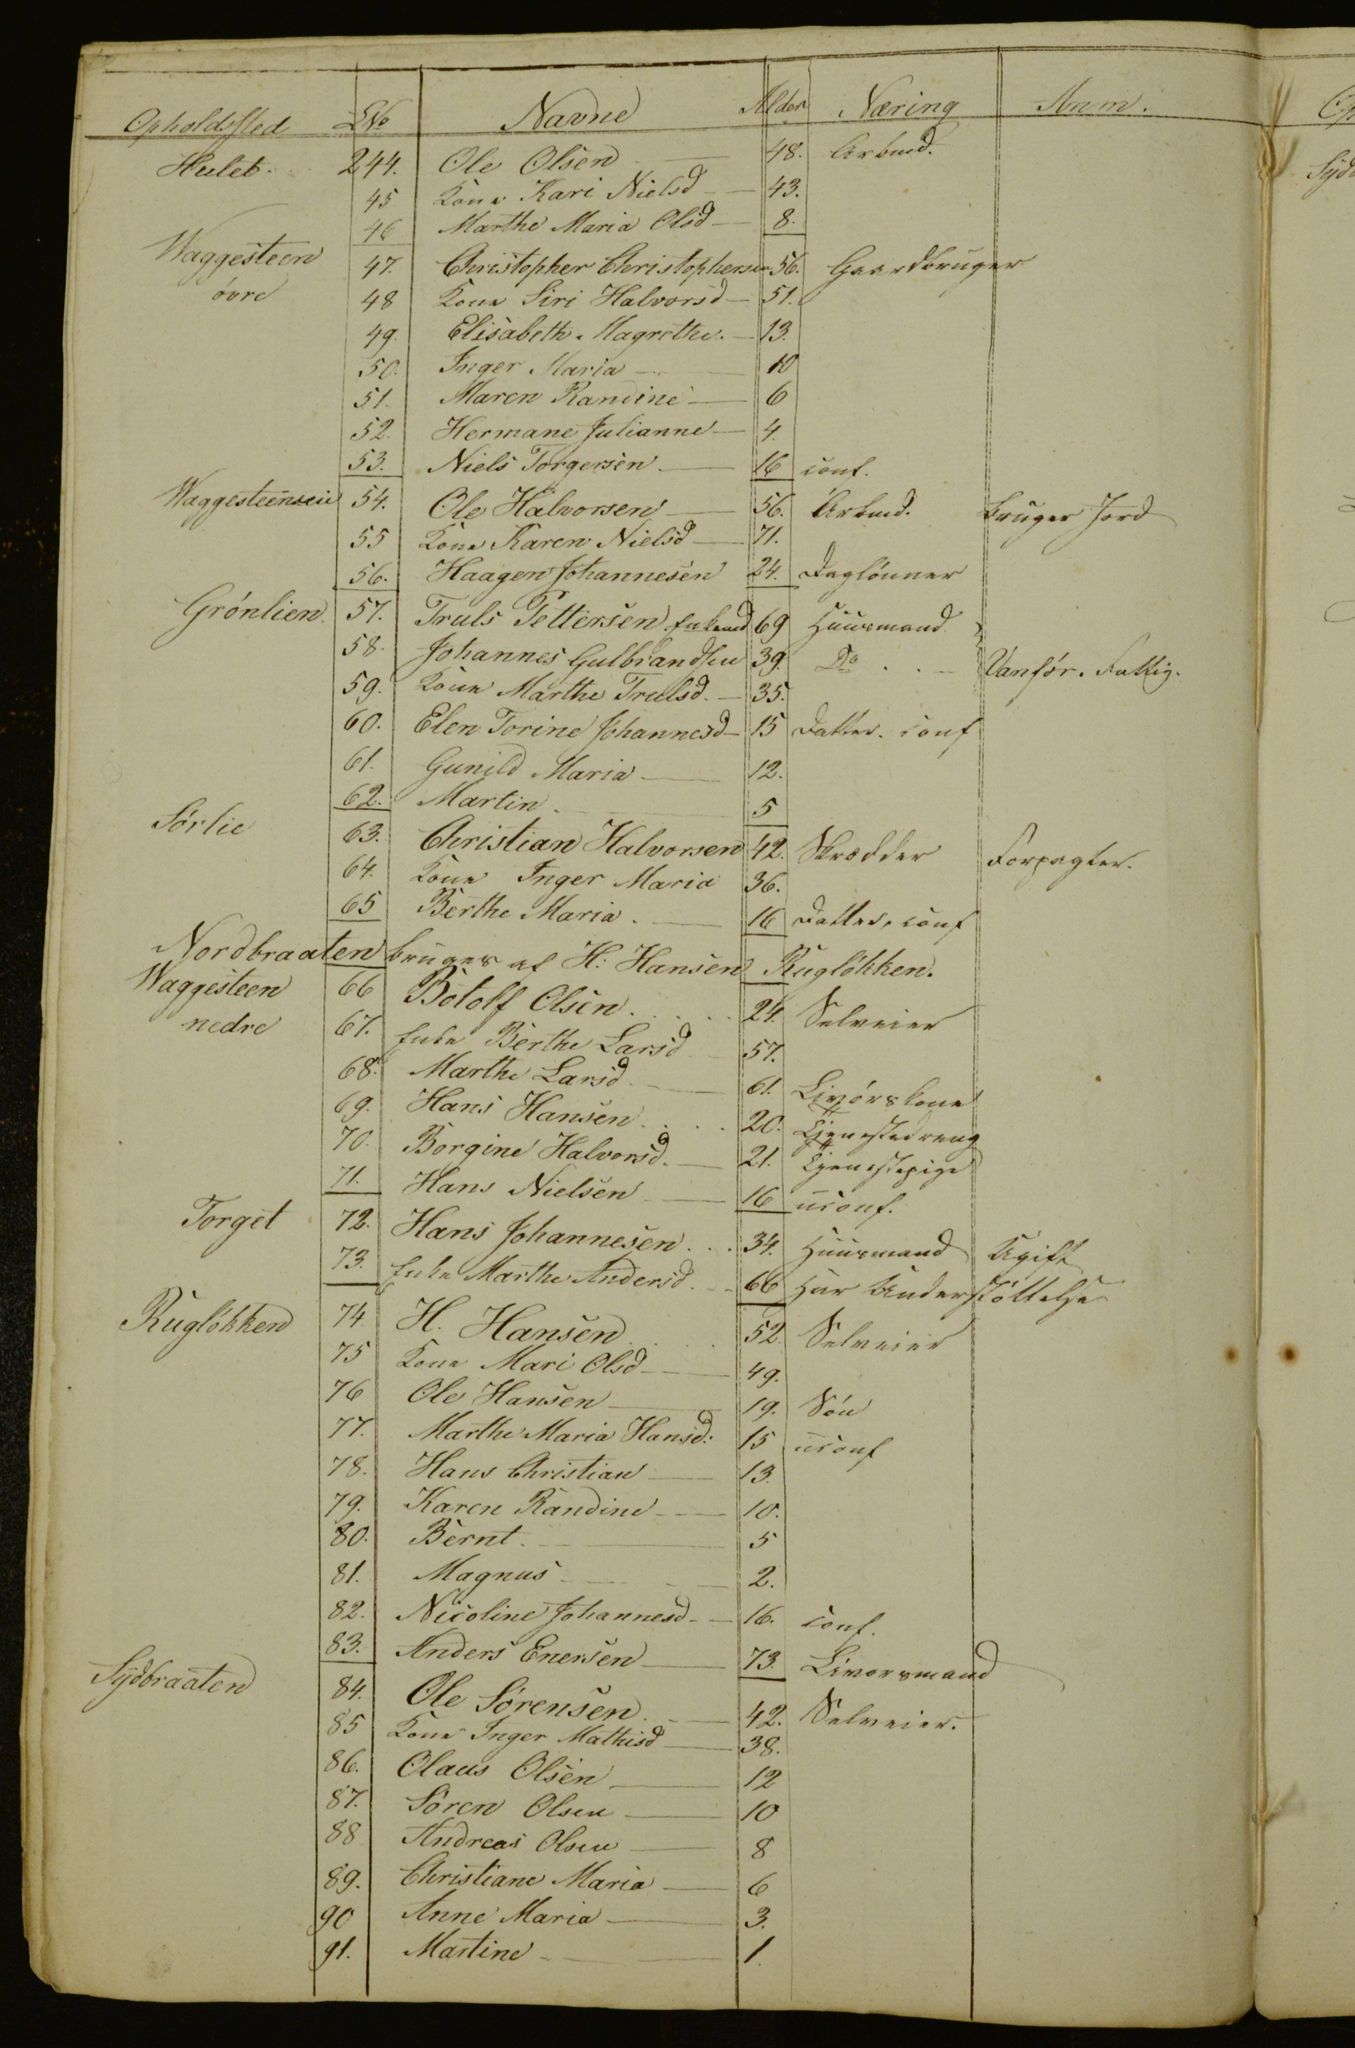 Opholdssted LNo Navne Alder Næring Anm.
Hulet. 244. Ole Olsen 48. Arbmd.
45 Kone Kari Nielsd 43.
46 Marthe Maria Olsd 8.
Waggesteen 47. Christopher Christophersen 56. Gaardbruger
øvre 48 Kone Siri Halvorsd 51.
49. Elisabeth Magrethe. 13.
50. Inger Maria 10
51. Maren Randine 6
52. Hermane Julianne 4.
53. Niels Torgersen 16 conf.
Waggesteenseie 54. Ole Halvorsen 56. Arbmd. bruger Jord
55 Kone Karen Nielsd 71.
56. Haagen Johannesen 24. Daglønner
Grønlien. 57. Truls Pettersen Enkemd 69 Huusmand
58. Johannes Gulbrandsen 39. Do Vanfør. Fattig.
59. Kone Marthe Trulsd. 35.
60. Elen Torine Johannesd 15 Datter. conf
61. Gunild Maria 12.
62. Martin. 5
Sørlie 63. Christian Halvorsen 42. Skrædder Forpagter.
64. Kone Inger Maria 36.
65 Berthe Maria. 16 Datter, conf
Nordbraaten bruges af H: Hansen Rugløkken.
Waggesteen 66 Botolf Olsen. 24. Selveier
nedre 67. Enke Berthe Larsd 57.
68. Marthe Larsd. 61. Livørskone
69. Hans Hansen. 20. Tjenestedreng
70. Borgine Halvorsd. 21. Tjenestepige
71. Hans Nielsen 16 uconf.
Torget 72. Hans Johannesen. 34. Huusmand Ugift
73. Enke Marthe Andersd. 66 Har Understøttelse
Rugløkken 74 H. Hansen 52. Selveier
75 Kone Mari Olsd 49.
76 Ole Hansen 19. Søn
77. Marthe Maria Hansd: 15 uconf
78. Hans Christian 13.
79. Karen Randine 10.
80. Bernt. 5
81. Magnus 2.
82. Nicoline Johannesd 16. conf.
83. Anders Enersen 73. Livorsmand
Sydbraaten 84. Ole Sørensen. 42. Selveier.
85 Kone Inger Mathisd 38.
86. Olaus Olsen 12
87. Søren Olsen 10
88 Andreas Olsen 8
89. Christiane Maria 6
90 Anne Maria 3.
91. Martine 1.